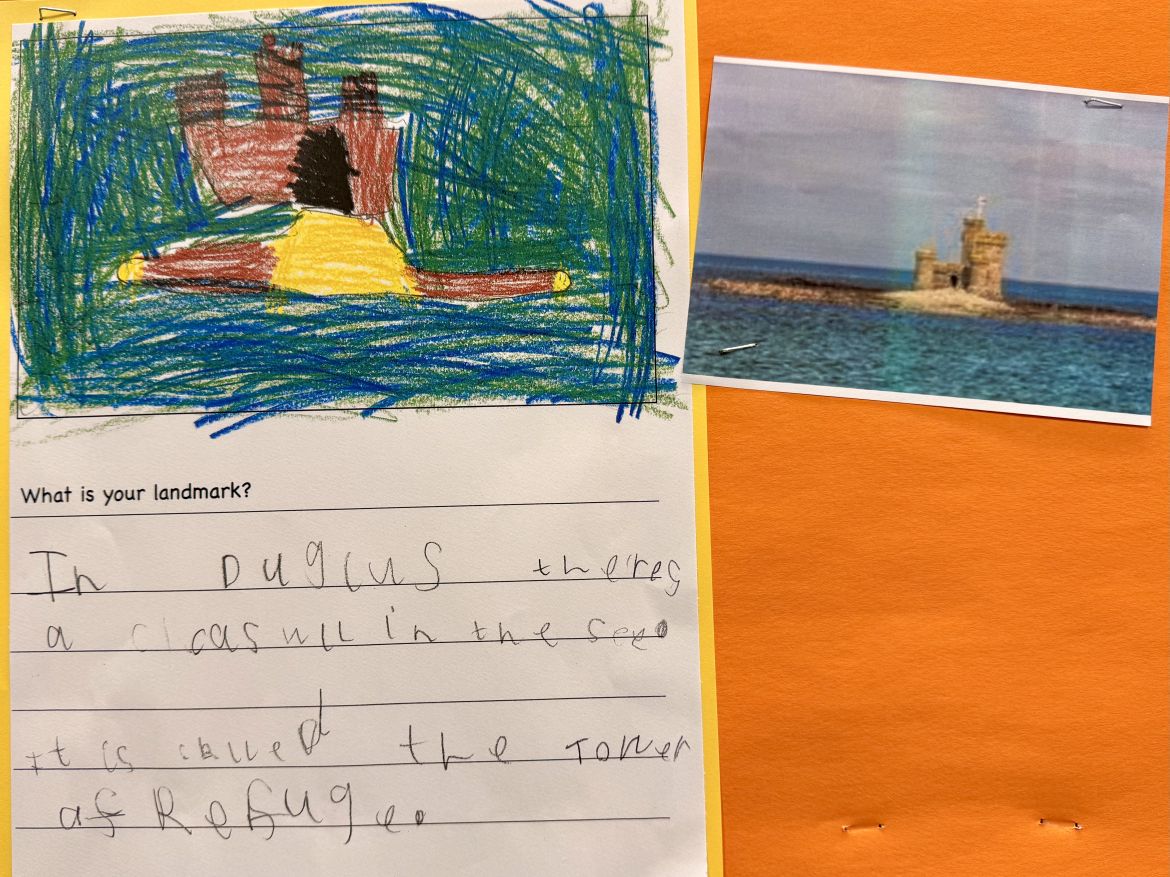 What is your landmark?
In Duglus theres
a caswll in the see.
It is called the Tower
af Refuge.